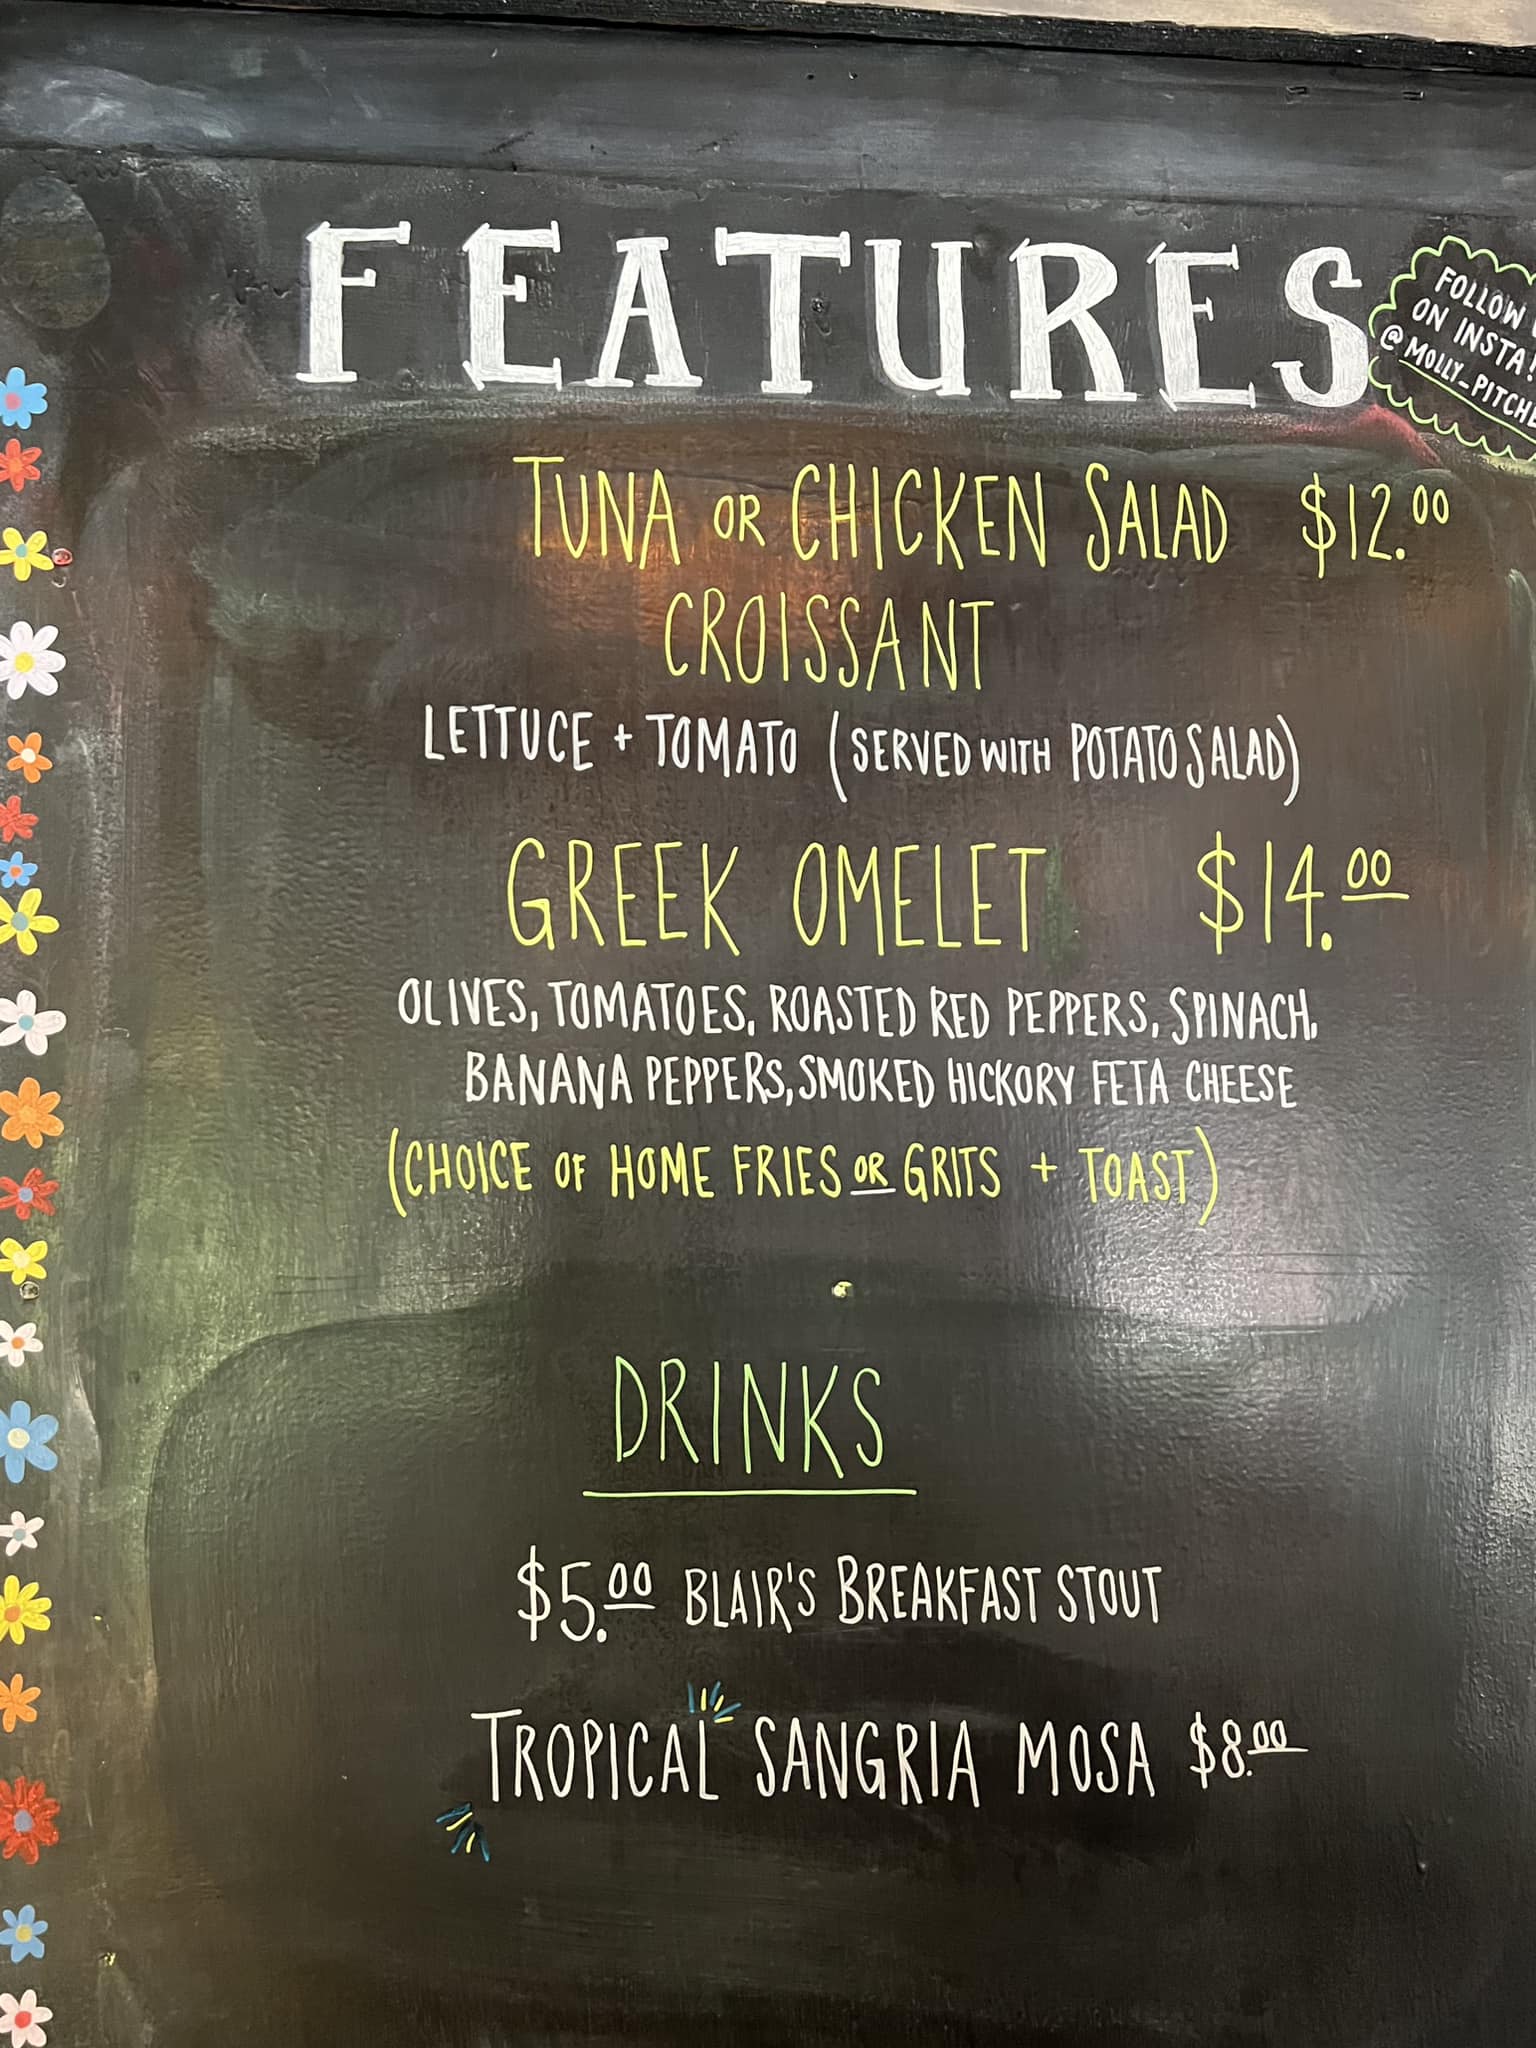 FEATURES
FOLLOW
ON INSTA!
@MOLLY_PITCHE
TUNA OR CHICKEN SALAD $12.00
CROISSANT
LETTUCE + TOMATO (SERVED WITH POTATO SALAD)
GREEK OMELET $14.00
OLIVES, TOMATOES, ROASTED RED PEPPERS, SPINACH,
BANANA PEPPERS, SMOKED HICKORY FETA CHEESE
(CHOICE OF HOME FRIES OR GRITS + TOAST)
DRINKS
$5.00 BLAIR'S BREAKFAST STOUT
TROPICAL SANGRIA MOSA $8.00